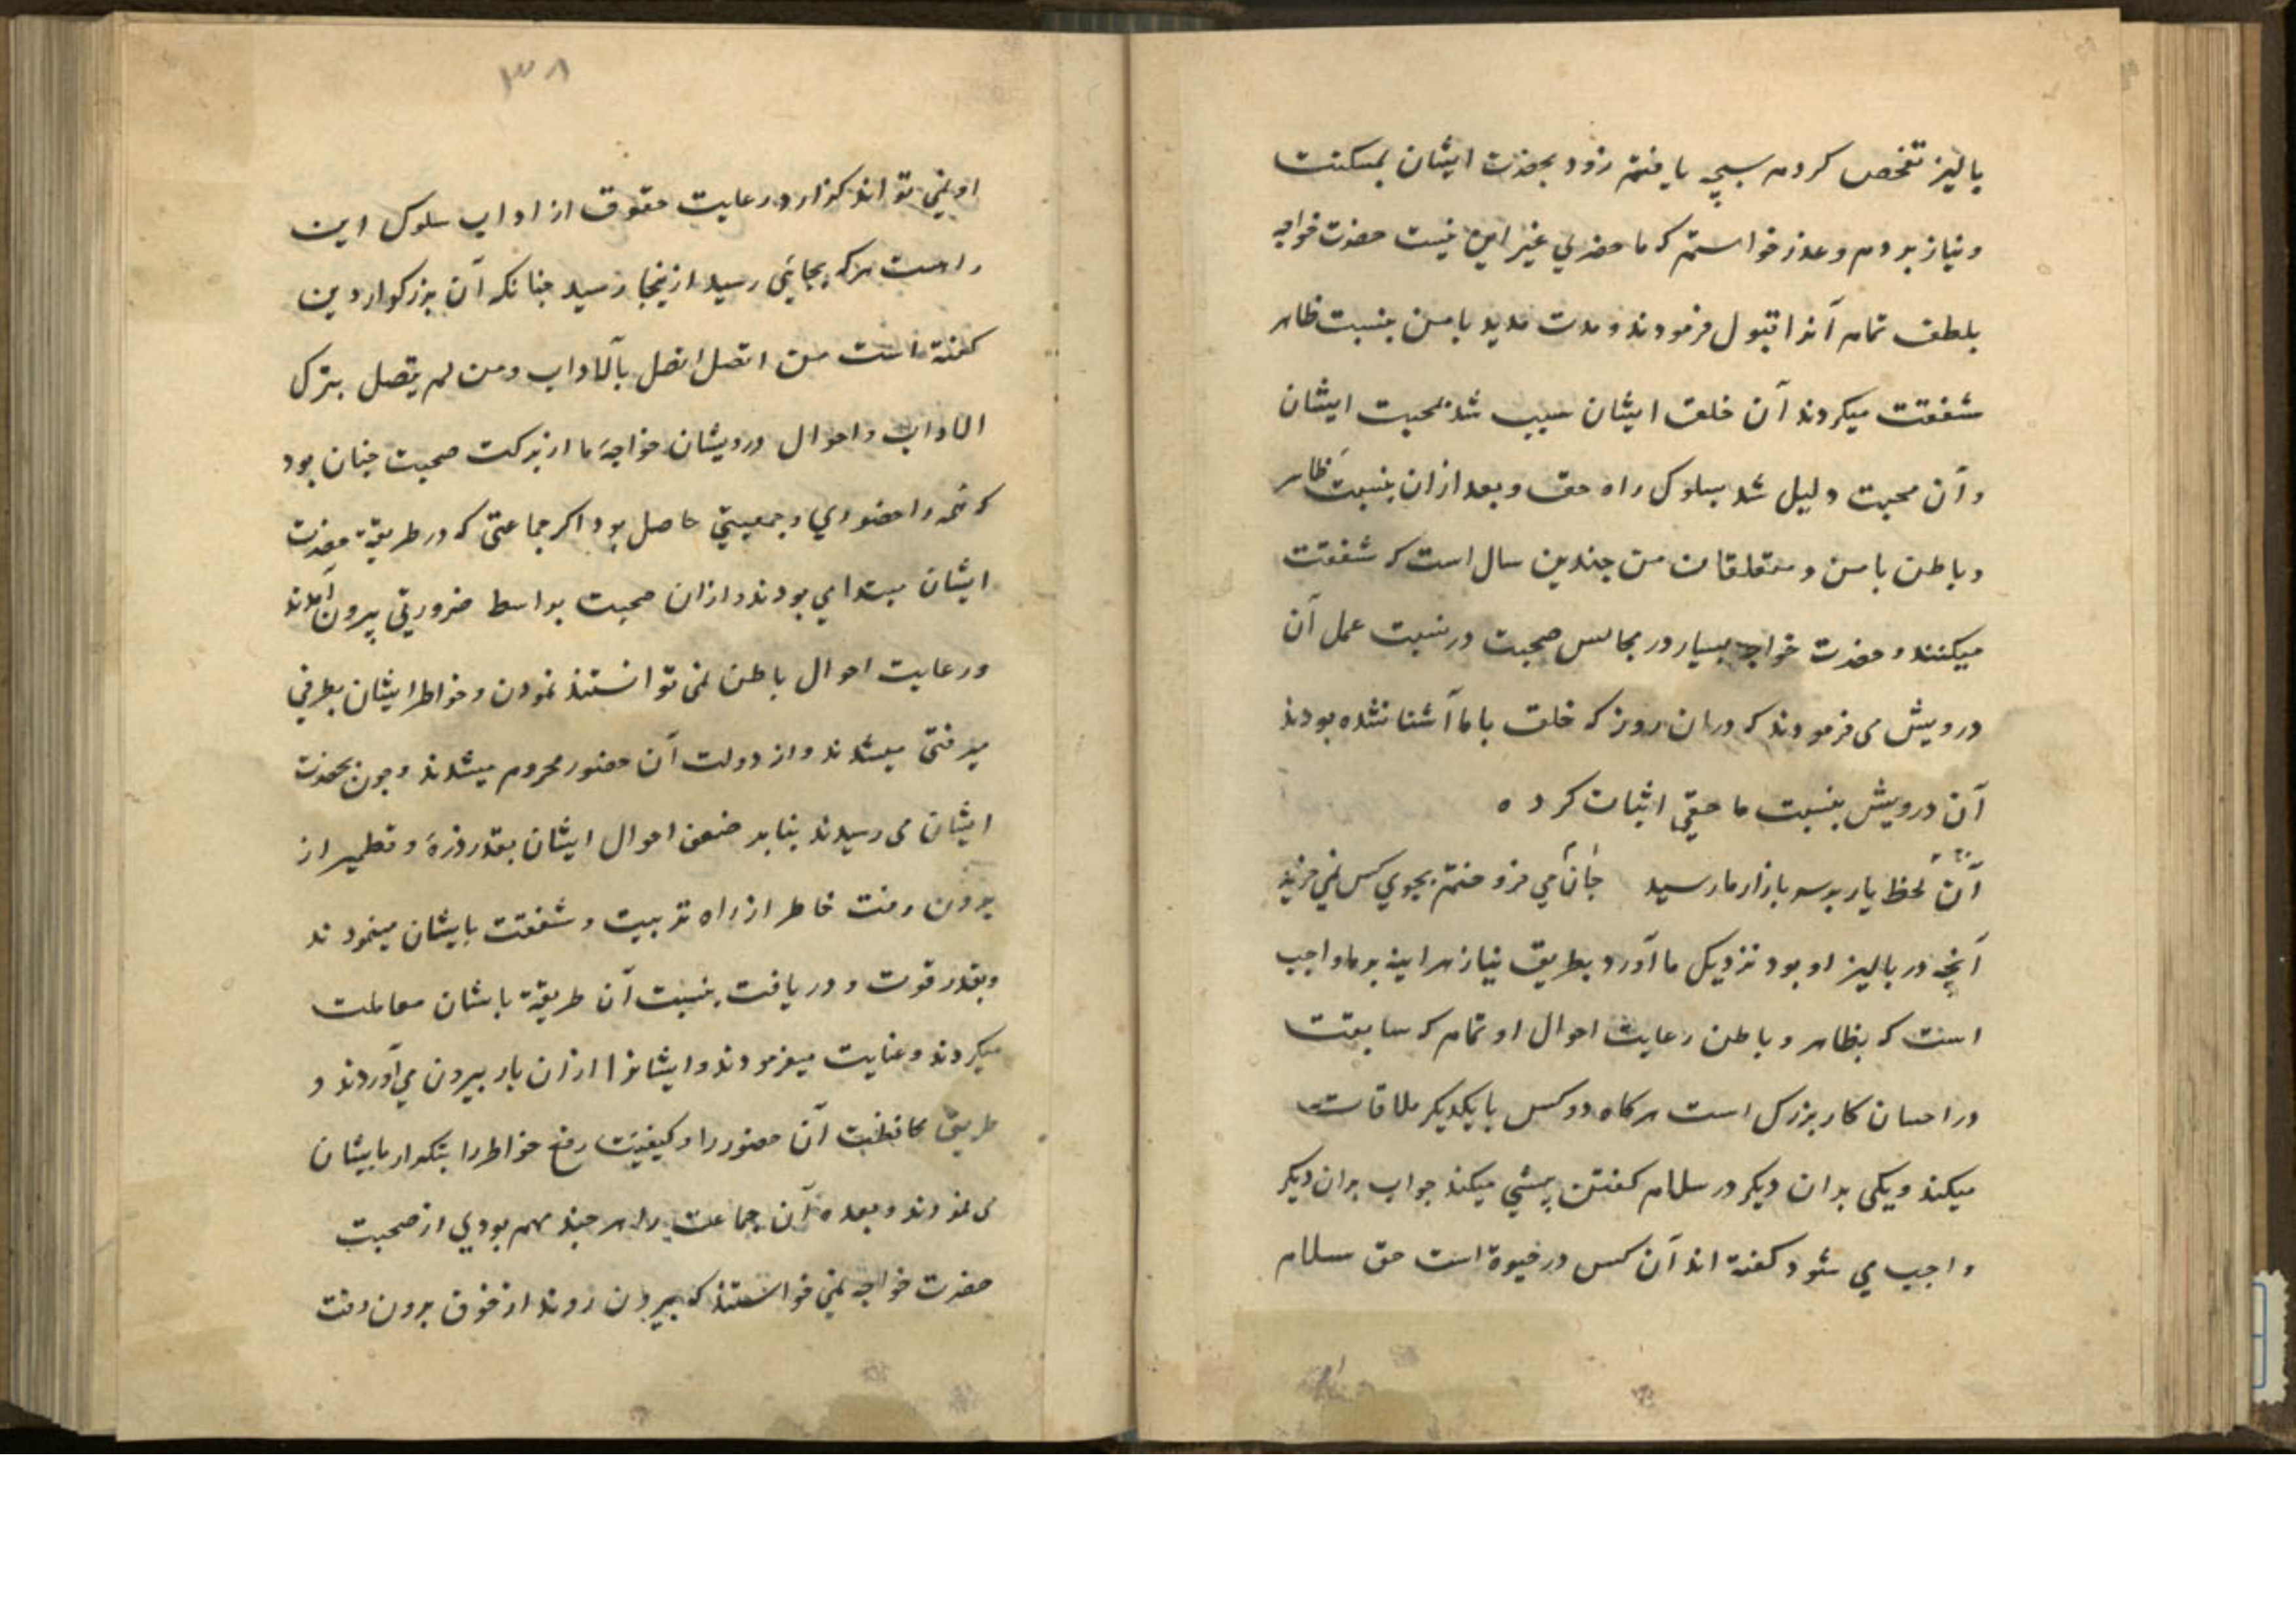 پالیز تفحص کردم سیبچه یافتم زود بحضرت ایشان بمسکنت
و نیاز بردم و عذر خواستم که ما حضری غیر این نیست حضرت خواجه
بلطف تمام آنرا قبول فرمودند و مدت مدید با من بنسبت ظاهر
شفقت میکردند آن خلق ایشان سبب شد بمحبت ایشان
و آن محبت دلیل شد بسلوک راه حق و بعد ازان بنسبت ظاهر
و باطن با من و متعلقان من چندین سال است که شفقت
میکنند و حضرت خواجه بسیار در مجالس صحبت در نسبت عمل آن
درویش می فرمودند که دران روز که خلق با ما آشنا نشده بودند
آن درویش بنسبت ما حقی اثبات کرده
آن لحظ یار بر سر بازار ما رسید جان می فروختم بجوی کس نمی خرید
آنچه در پالیز او بود نزدیک ما آورد بطریق نیاز هراینه بر ما واجب
است که بظاهر و باطن رعایت احوال او تمام که سابقت
در احسان کار بزرگ است هرکاه دو کس با یکدیکر ملاقات
میکند و یکی بدان دیکر در سلام کفتن پیشی میکند جواب بران دیکر
واجب می شود کفته اند آن کس در خیوة است حق سلام
۳۸
او نمی تواند کزارد رعایت حقوق از اداب سلوک این
راهست هرکه بجایئ رسید ازینجا رسید جنانکه آن بزرکوار دین
کفته است من اتصل اتصل بآلاداب ومن لم یتصل بترک
الاداب و احوال درویشان خواجۀ ما از برکت صحبت جنان بود
که همه را حضوری و جمعیتی حاصل بود اکر جماعتی که در طریقۀ حضرت
ایشان مبتدای بودند و ازان صحبت بواسط ضرورتی بیرون آمدند
و رعایت احوال باطن نمی توانستند نمودن و خواطر ایشان بطرفی
میرفتی میشدند و از دولت آن حضور محروم میشدند و جون بحضرت
ایشان می رسیدند بنابر ضعف احوال ایشان بقدر ذرۀ و قطمیر از
برون رفت خاطر از راه تربیت و شفقت بایشان مینمودند
و بقدر قوت و دریافت بنسبت آن طریقۀ باشان معاملت
میکردند و عنایت میفرمودند و ایشانرا ازان بار بیرون می آوردند و
طریق محافظت آن حضور را و کیفیت رفع خواطر را بتکرار بایشان
می نمودند و بعده آن جماعت را هر جند مهم بودی از صحبت
حضرت خواجه نمی خواستند که بیرون روند از خوف برون رفت